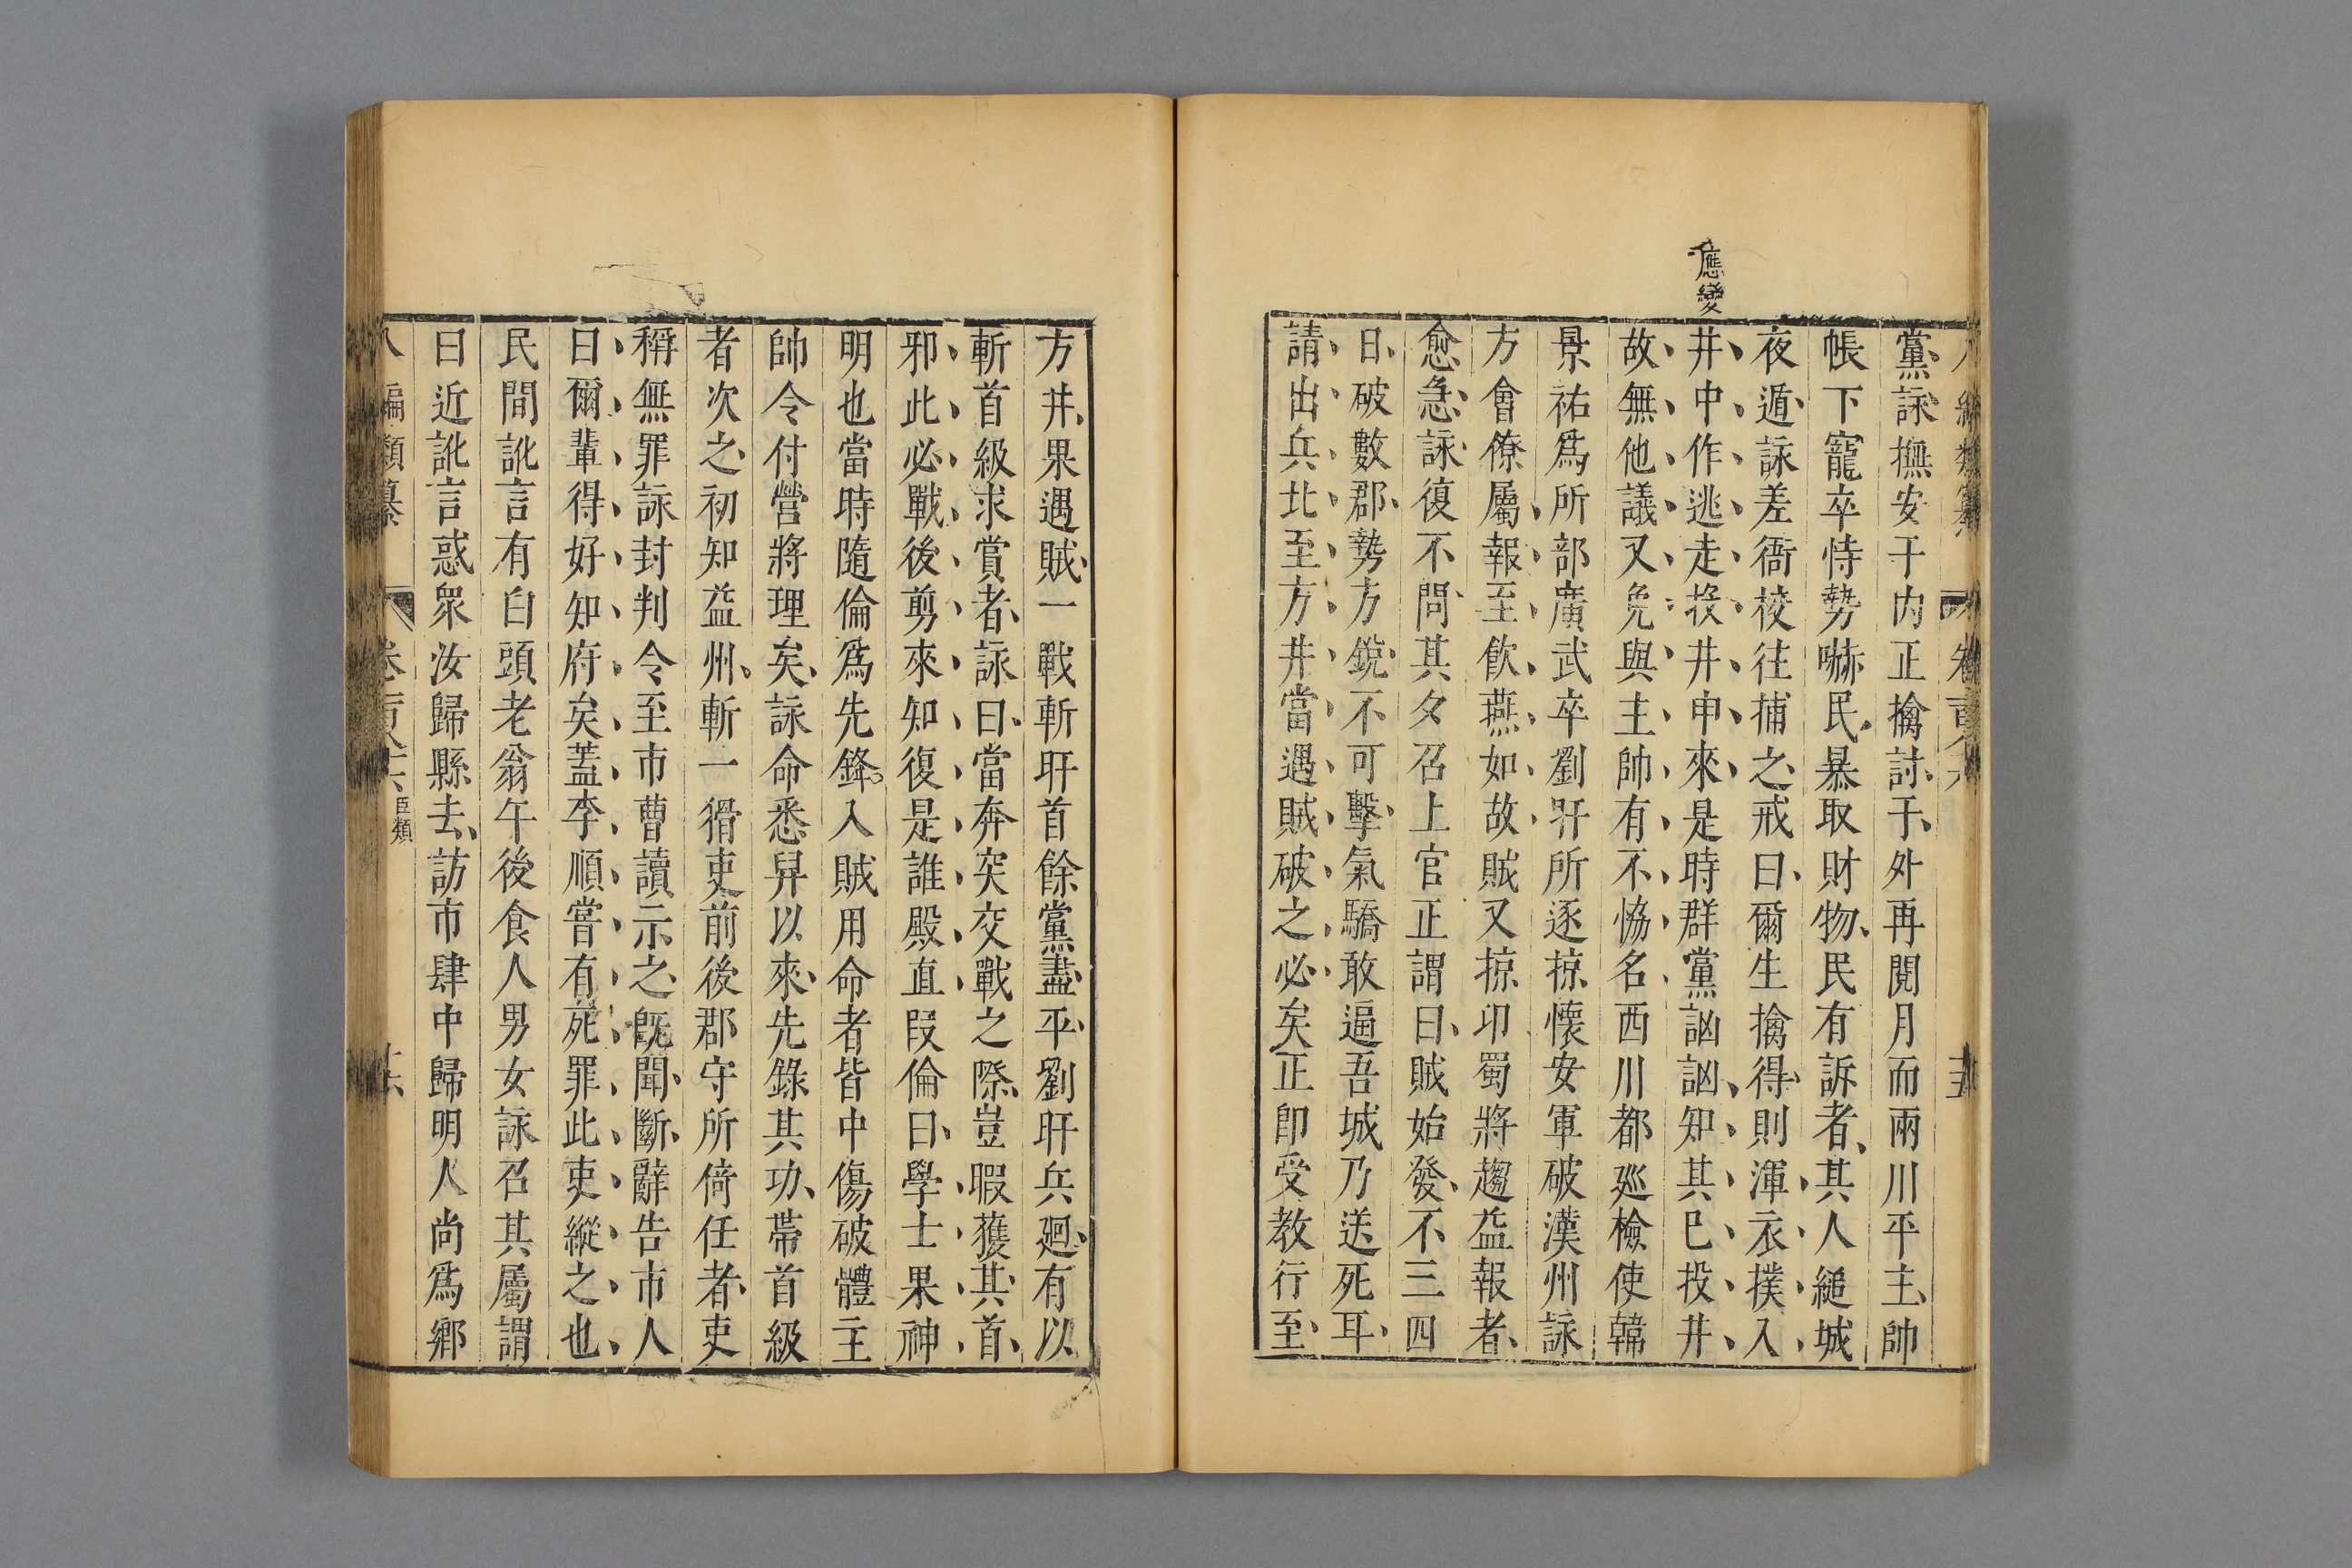 應變
黨詠撫安于內正擒討于外再閱月而兩川平主帥
帳下寵卒恃勢嚇民暴取財物民有訴者其人縋城
夜遁詠差衙校往捕之戒曰爾生擒得則渾衣撲入
井中作逃走投井申來是時群黨訩訩知其已投井
故無他議又免與主帥有不恊名西川都廵檢使韓
景祐爲所部廣武卒劉旰所逐掠懷安軍破漢州詠
方會僚屬報至飲燕如故賊又掠卭蜀將趨益報者
愈急詠復不問其夕召上官正謂曰賊始發不三四
日破數郡勢方銳不可擊氣驕敢逼吾城乃送死耳
請出兵北至方井當遇賊破之必矣正即受教行至
方井果遇賊一戰斬旰首餘黨盡平劉旰兵廻有以
斬首級求賞者詠曰當奔突交戰之際豈暇獲其首
邪此必戰後剪來知復是誰殿直叚倫曰學士果神
明也當時隨倫爲先鋒入賊用命者皆中傷破體主
帥令付營將理矣詠命悉舁以來先錄其功帶首級
者次之初知益州斬一猾吏前後郡守所倚任者吏
稱無罪詠封判令至市曹讀示之既聞斷辭告市人
曰爾輩得好知府矣蓋李順嘗有死罪此吏縱之也
民間訛言有白頭老翁午後食人男女詠召其屬謂
曰近訛言惑眾汝歸縣去訪市肆中歸明人尚爲鄉
八編類纂 卷百八六 臣類